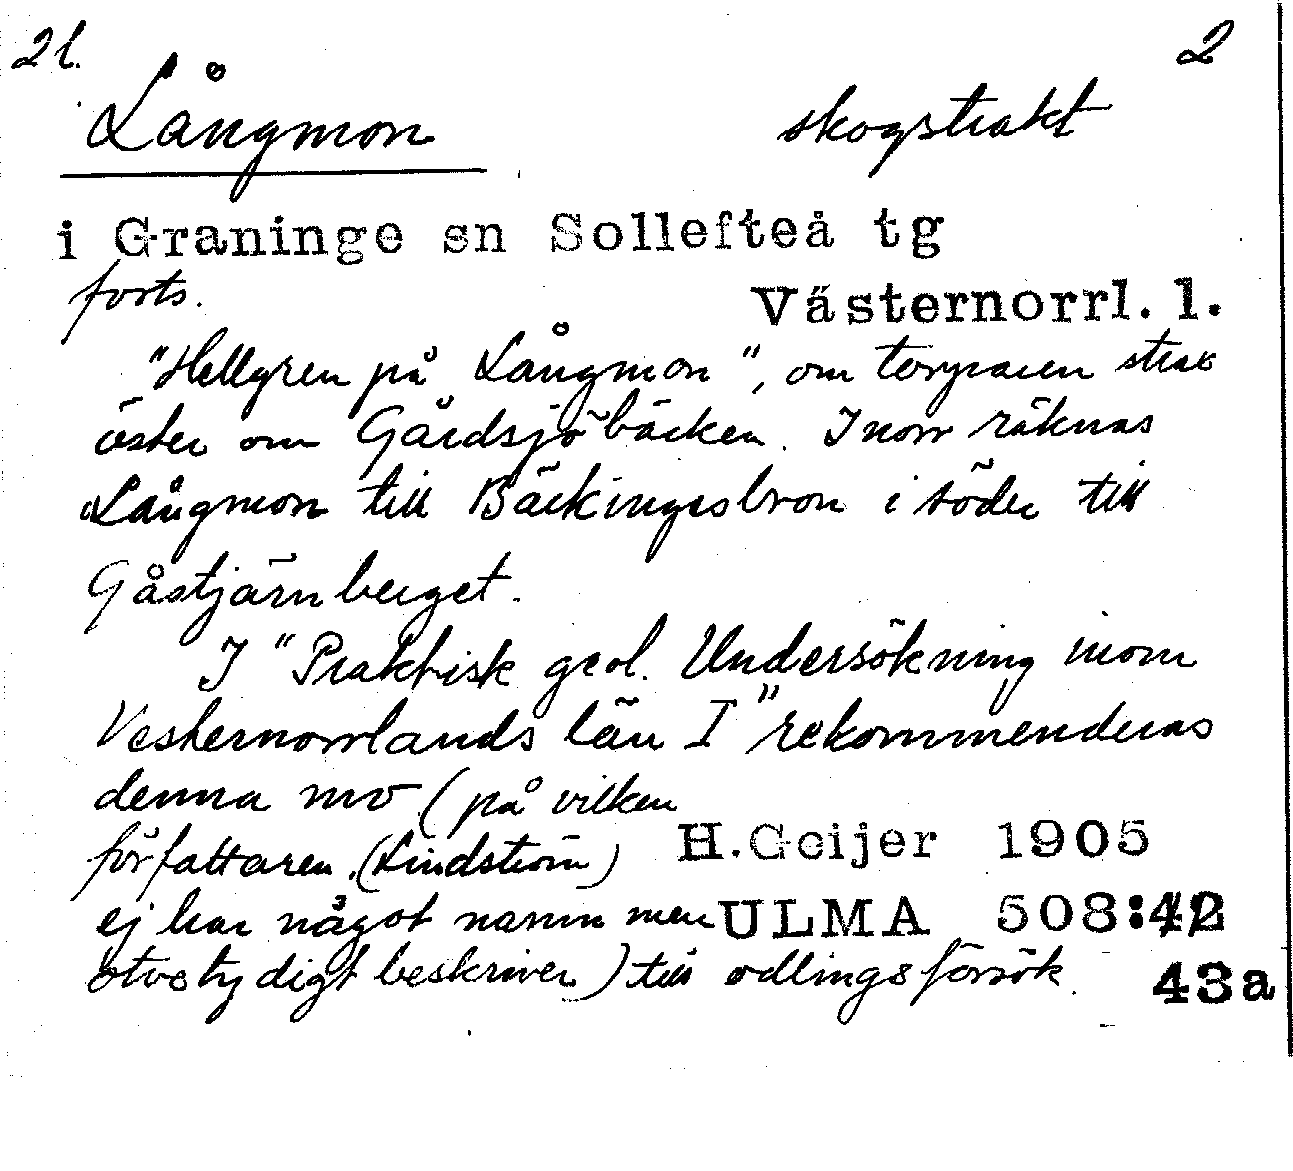 2l. 2
Långmon skogstrakt
i Graninge sn Sollefteå tg
forts.
Västernorrl. l.
"Hellgren på Långmon", om torparen strax
öster om Gårdsjöbäcken. I norr räknas
Långmon till Bäckingesbron i söder till
Gåstjärnberget.
I "Praktisk geol. Undersökning inom
Vesternorrlands län I" rekommenderas
denna mo (på vilken
författaren (Lindström) H.Geijer 1905
ej har något namn men ULMA 508:42
otvetydigt beskriver) till odlingsförsök. 43a